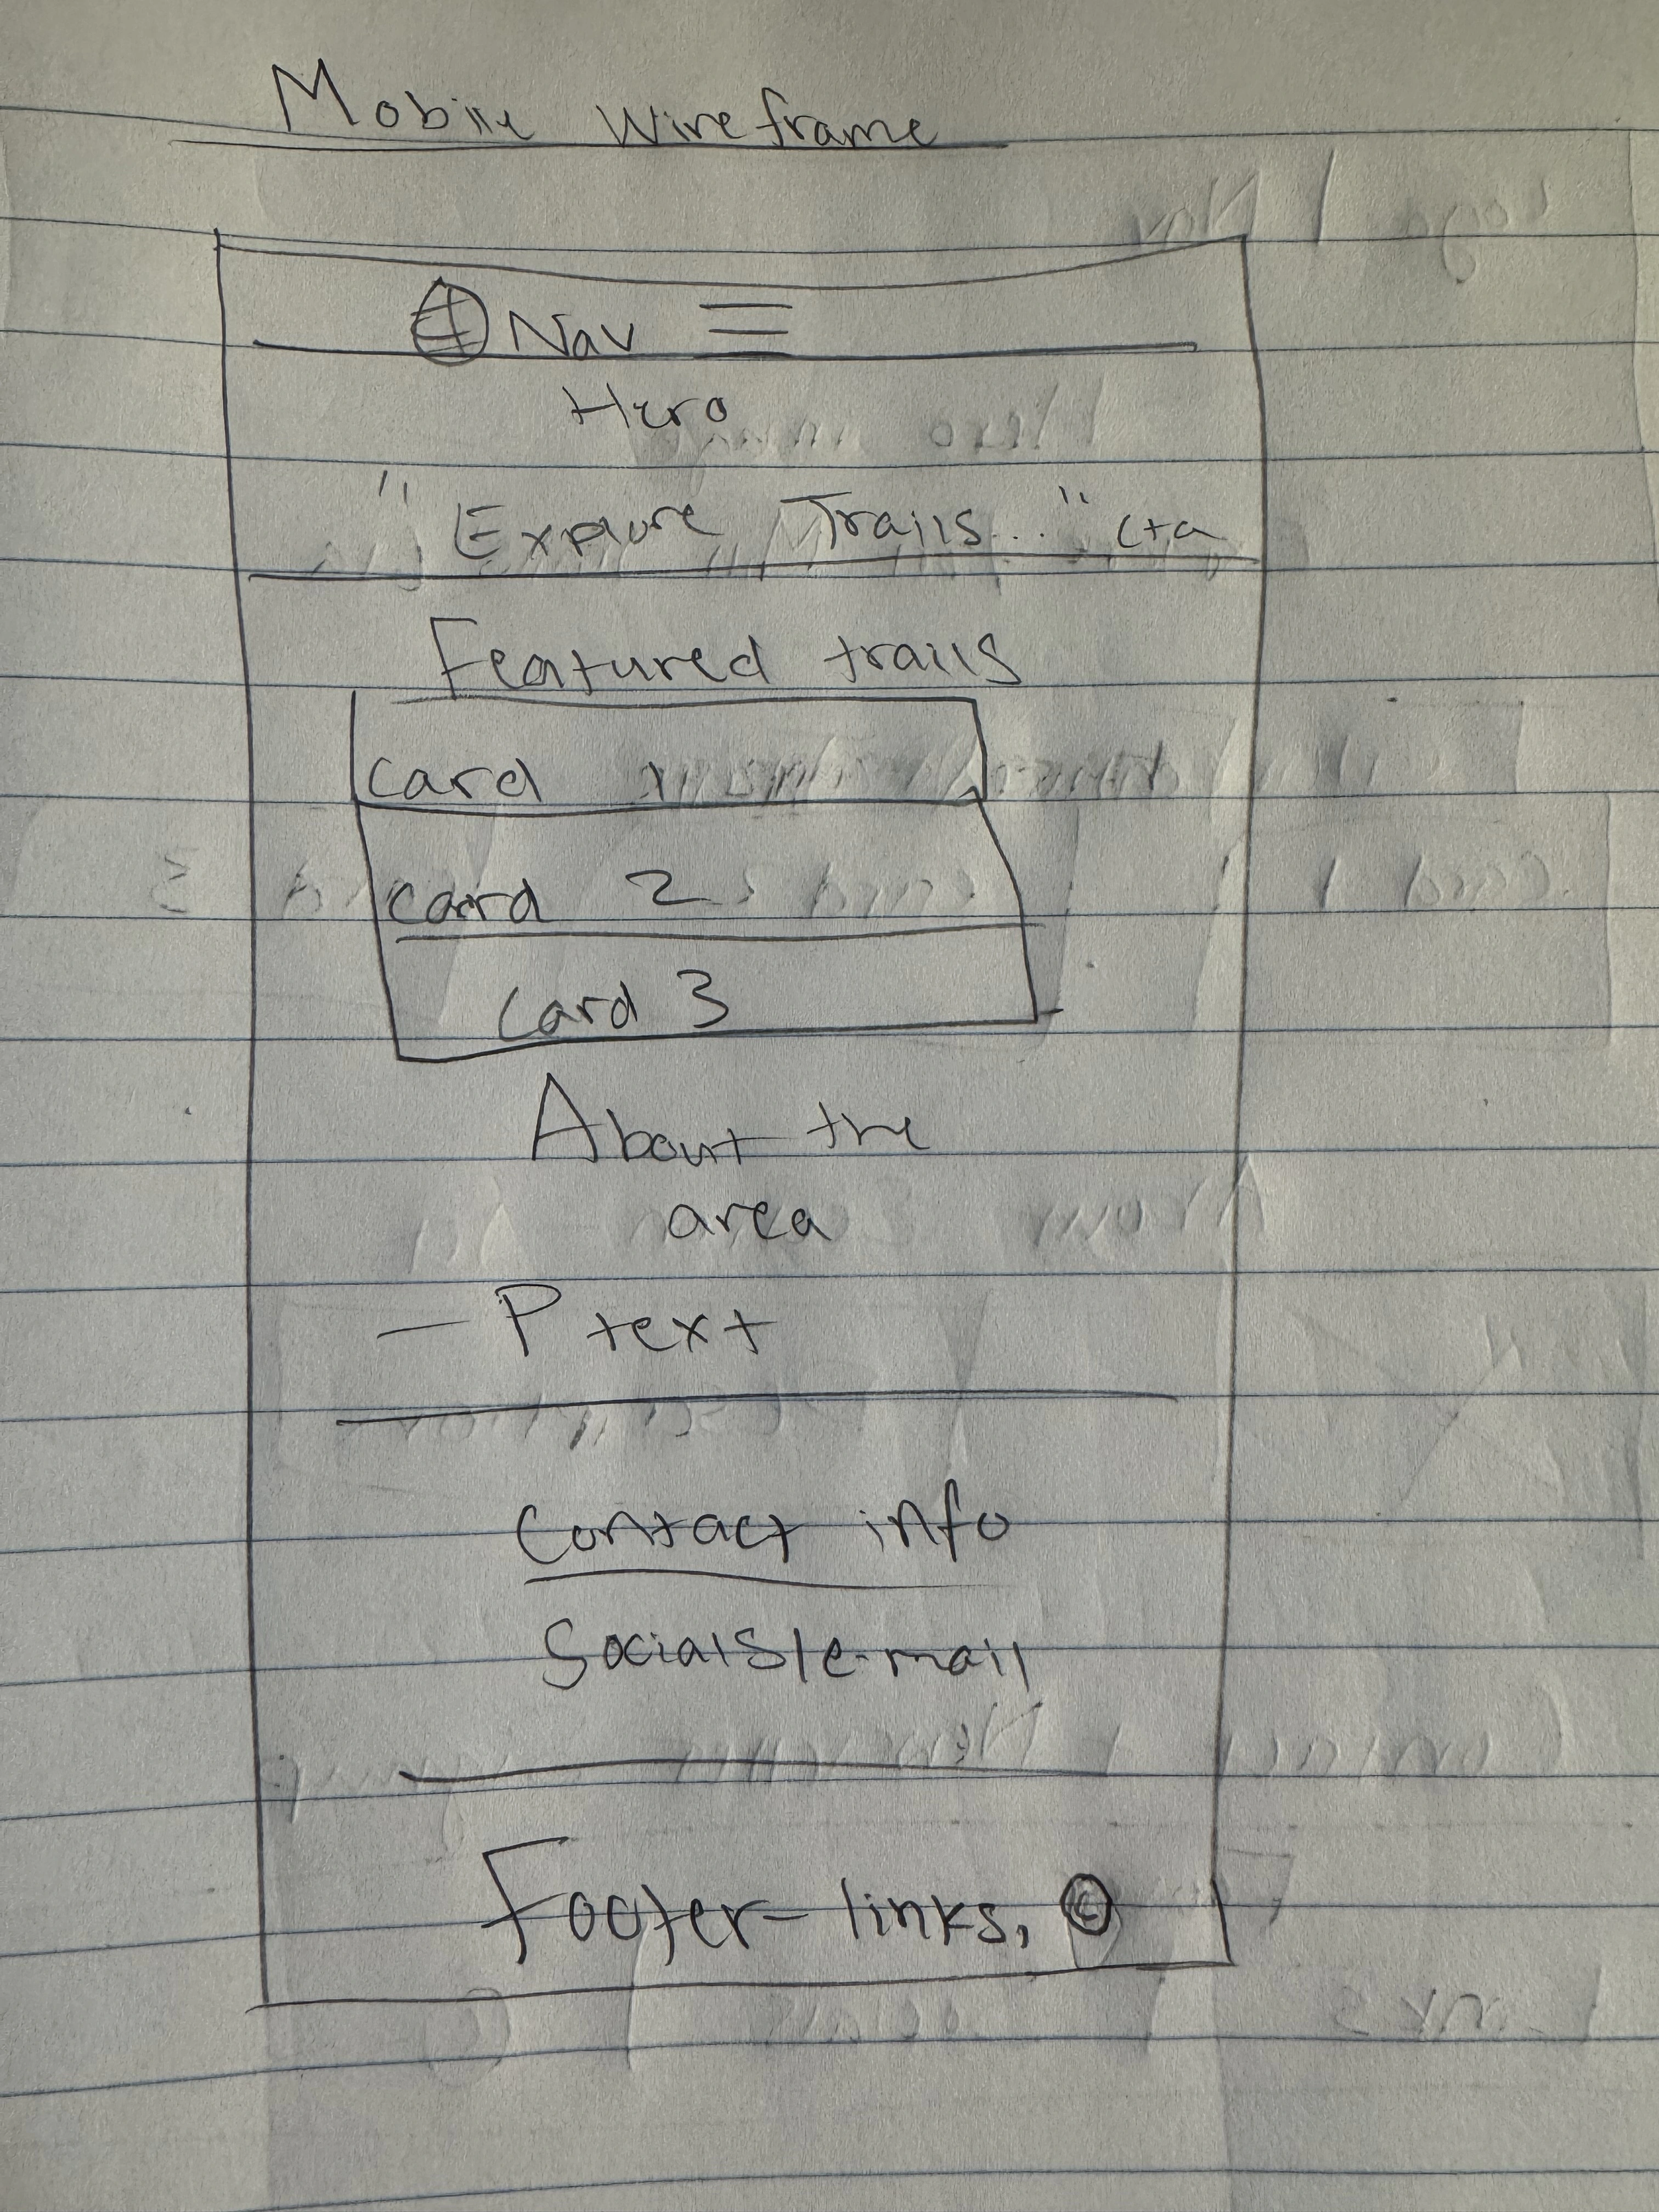 Mobile Wireframe
Nav
Hero
"Explore Trails..." cta
Featured trails
card 1
card 2
card 3
About the
area
- P text
Contact info
Socials/e-mail
Footer - links, ©